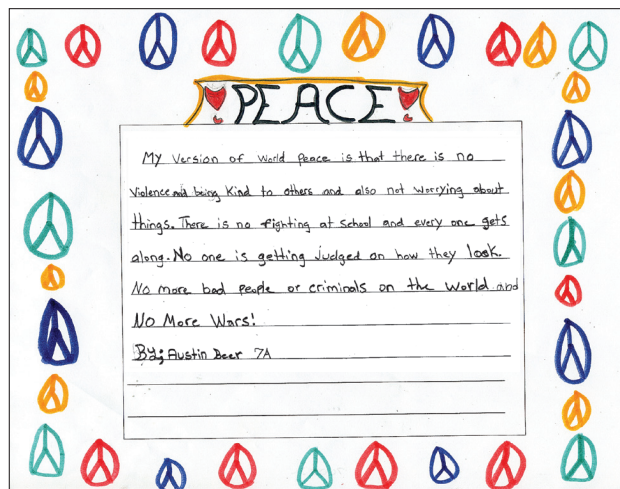 PEACE
My Version of World Peace is that there is no
Violence and being Kind to others and also not worrying about
things. There is no fighting at school and every one gets
along. No one is getting Judged on how they look.
No more bad people or criminals on the world and
No More Wars!
By; Austin Beer 7A